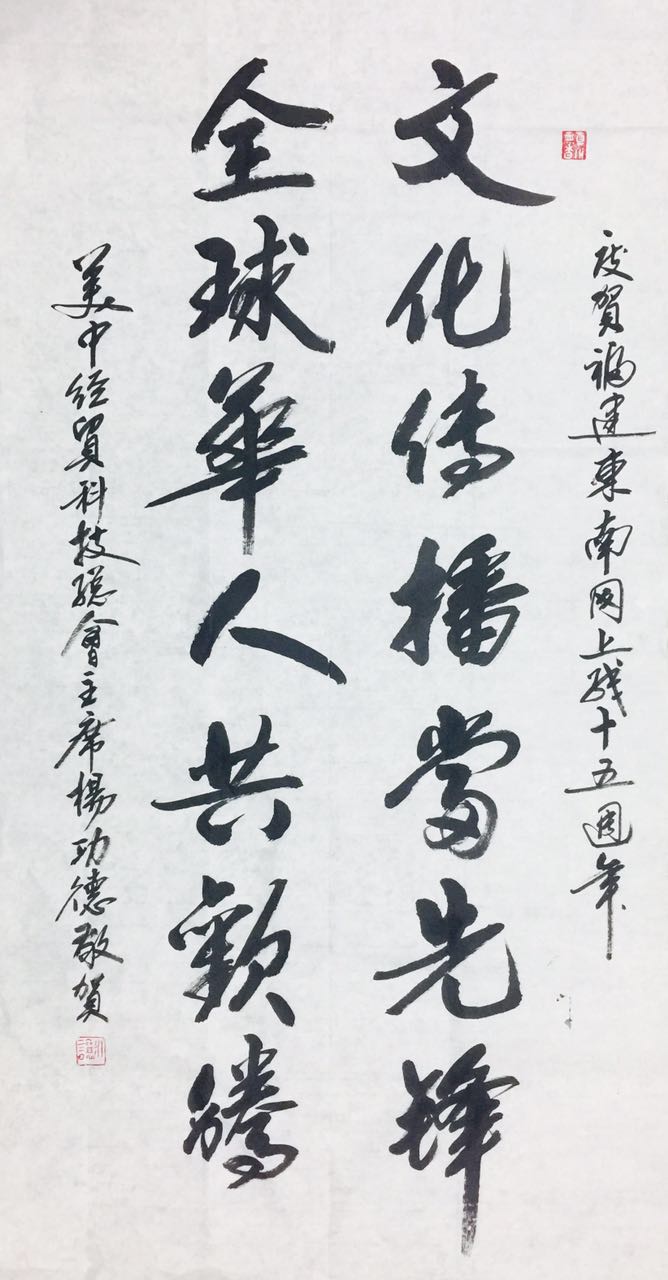 庆贺福建东南网上线十五週年
文化传播當先锋
全球華人共歡騰
美中经贸科技總會主席楊功德敬贺